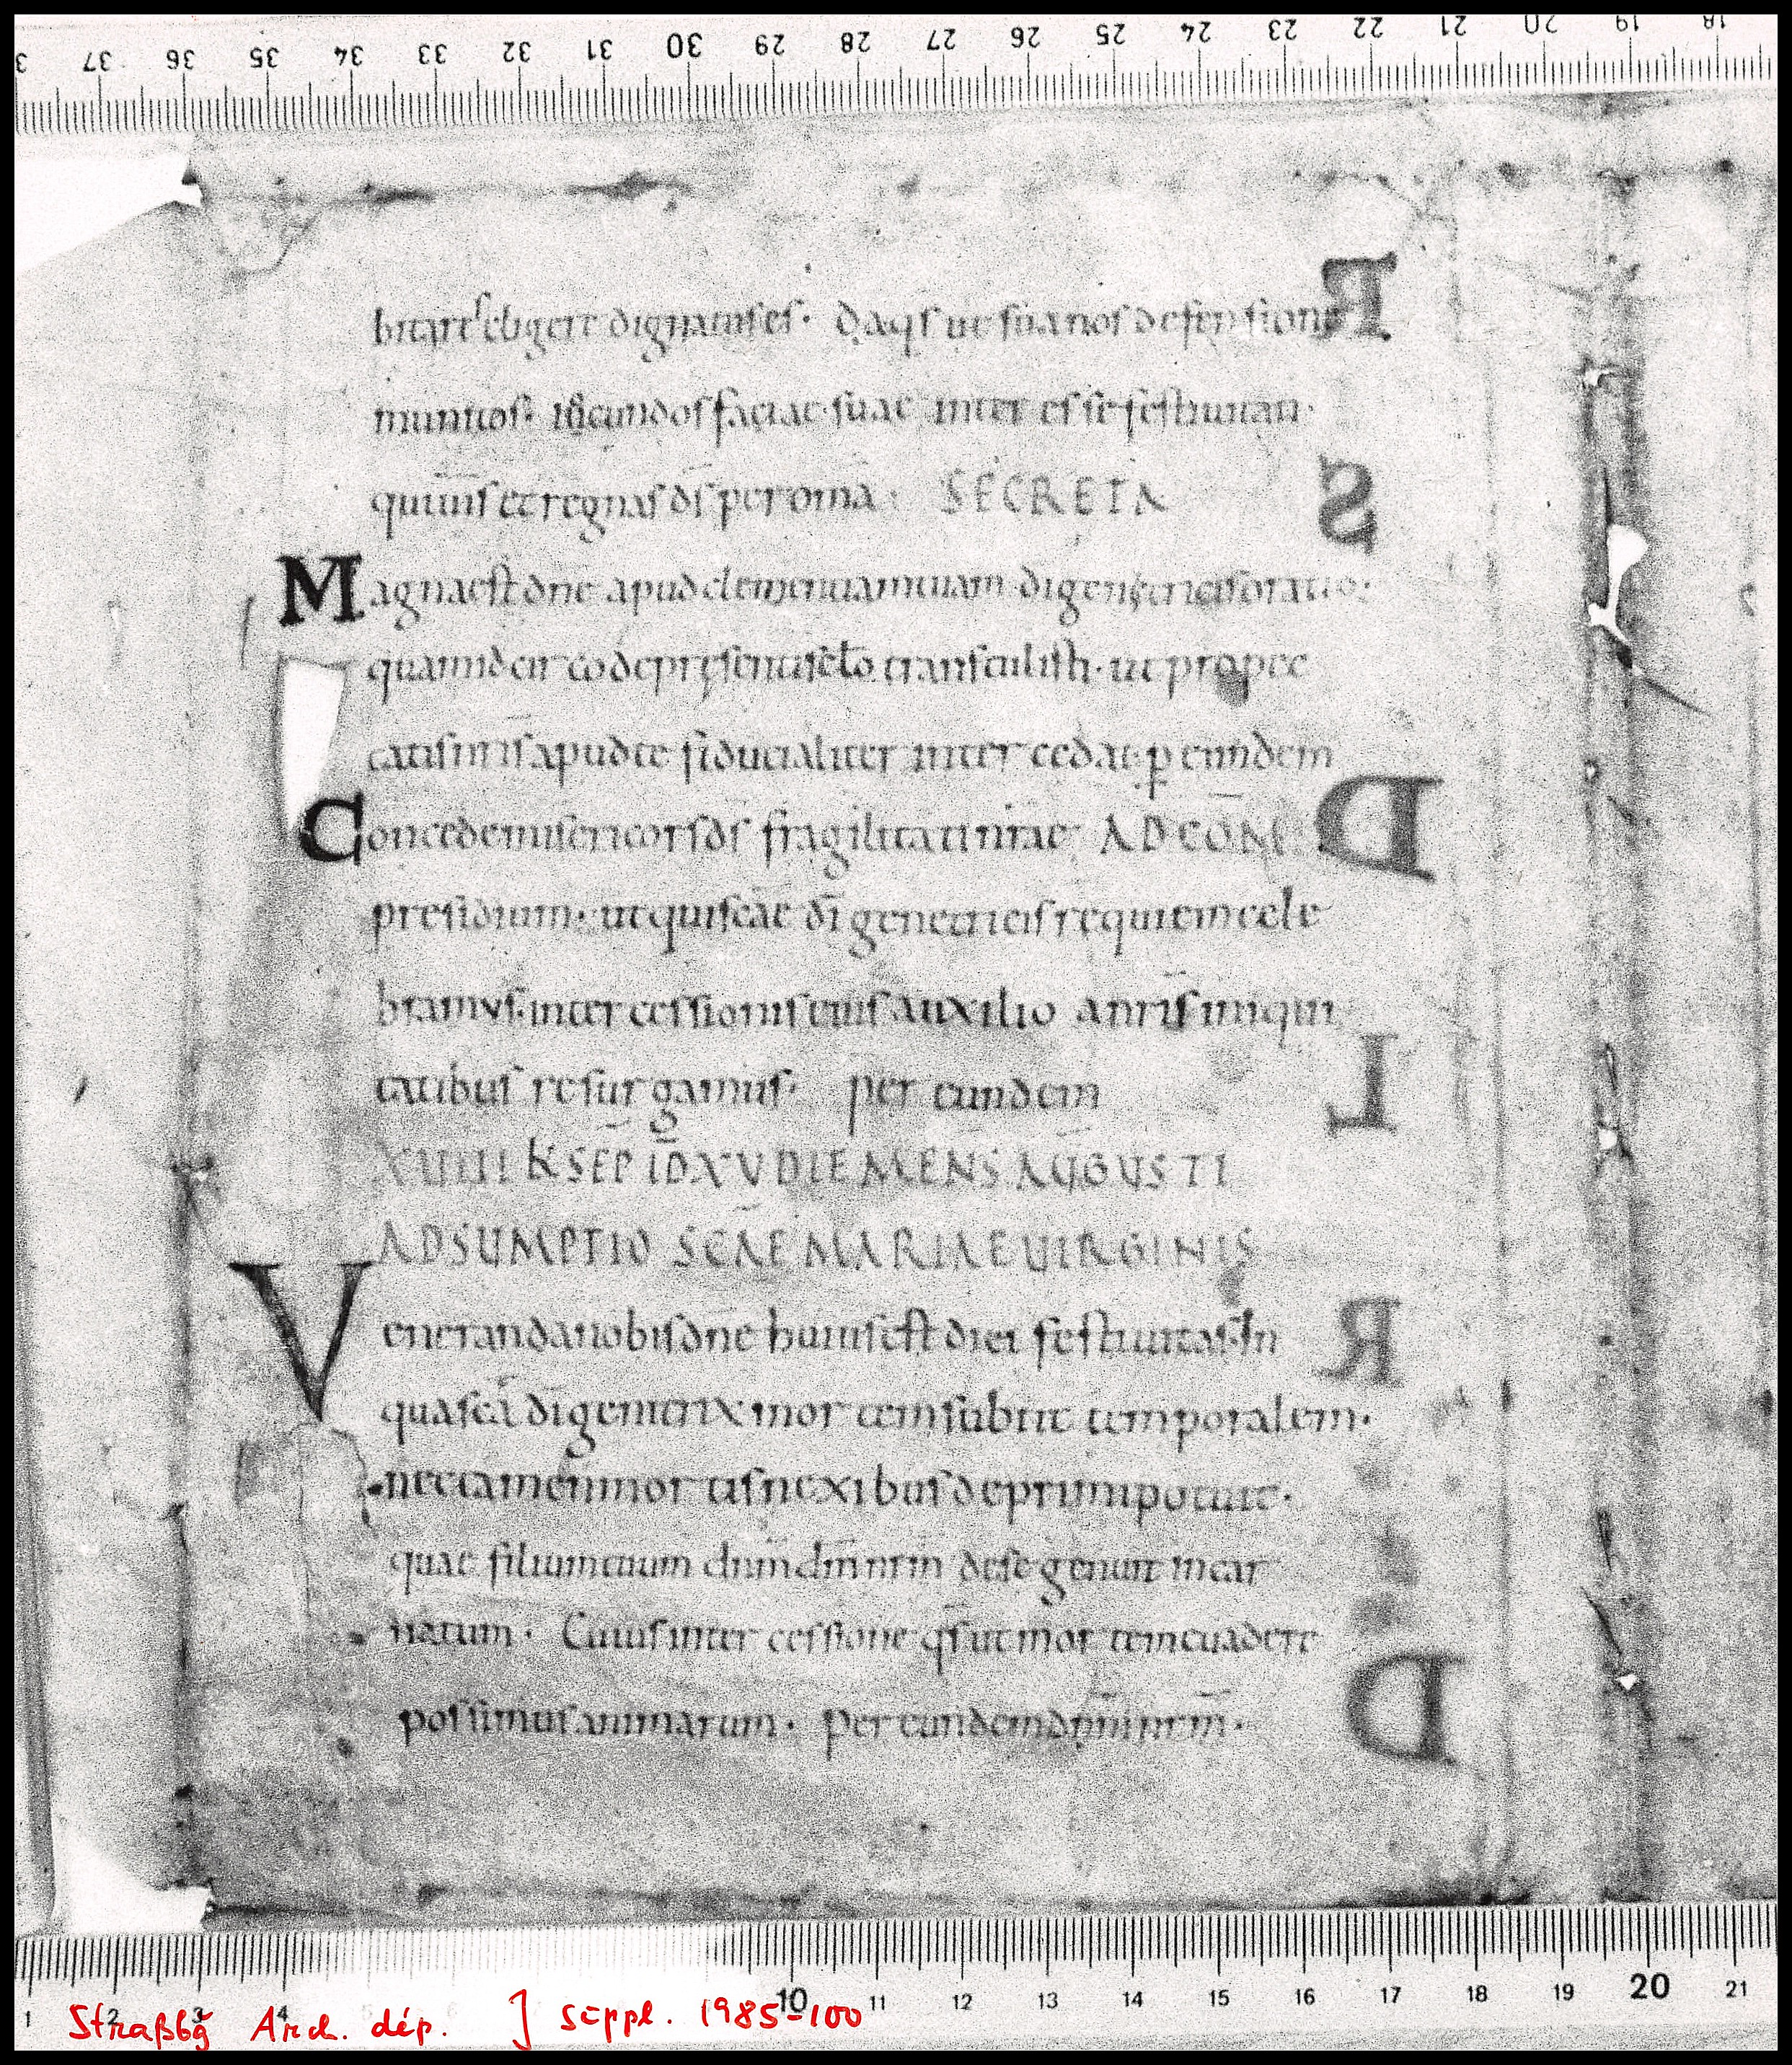 bitare eligere dignatus es· da qs ut sua nos defensione
munitos· iucundos faciat suae inter esse festiuitati·
qui uiuis et regnas ds per omā· SECRETA
Magna est dne apud clementiam tuam di genetricis oratio·
quam idcir co de presenti sclo transtulisti· ut pro pec
catis nris apud te fiducialiter inter cedat· p eundem
Concede misericors ds fragilitati nrae AD COM
presidium· ut qui scae di genetricis requiem cele
bramus· inter cessionis eius auxilio a nris iniqui
tatibus resur gamus· per eundem
XUIIII K SEP ID XV DIE MENS AUGUSTI
ADSUMPTIO SCAE MARIAE UIRGINIS
Veneranda nobis dne huius est diei festiuitas· In
qua sca di genitrix mor tem subiit temporalem·
nec tamen mor tis nexibus deprimi potuit·
quae filium tuum dnm nrm de se genuit incar
natum· Cuius inter cessione qs ut mor tem euadere
possimus animarum· per eundem dnm nrm·
Straßbg Arch. dép. J suppl. 1985-100